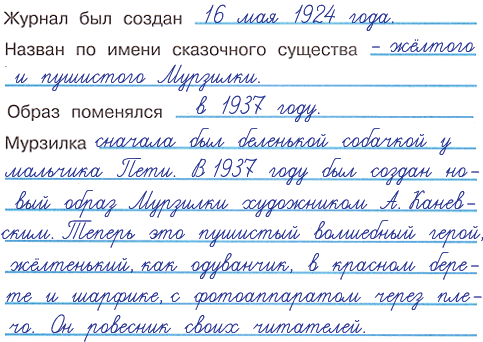 Журнал был создан 16 мая 1924 года.
Назван по имени сказочного существа – жёлтого
и пушистого Мурзилки.
Образ поменялся в 1937 году.
Мурзилка сначала был беленькой собачкой у
мальчика Пети. В 1937 году был создан но-
вый образ Мурзилки художником А. Канев-
ским. Теперь это пушистый волшебный герой,
жёлтенький, как одуванчик, в красном бере-
те и шарфике, с фотоаппаратом через пле-
чо. Он ровесник своих читателей.